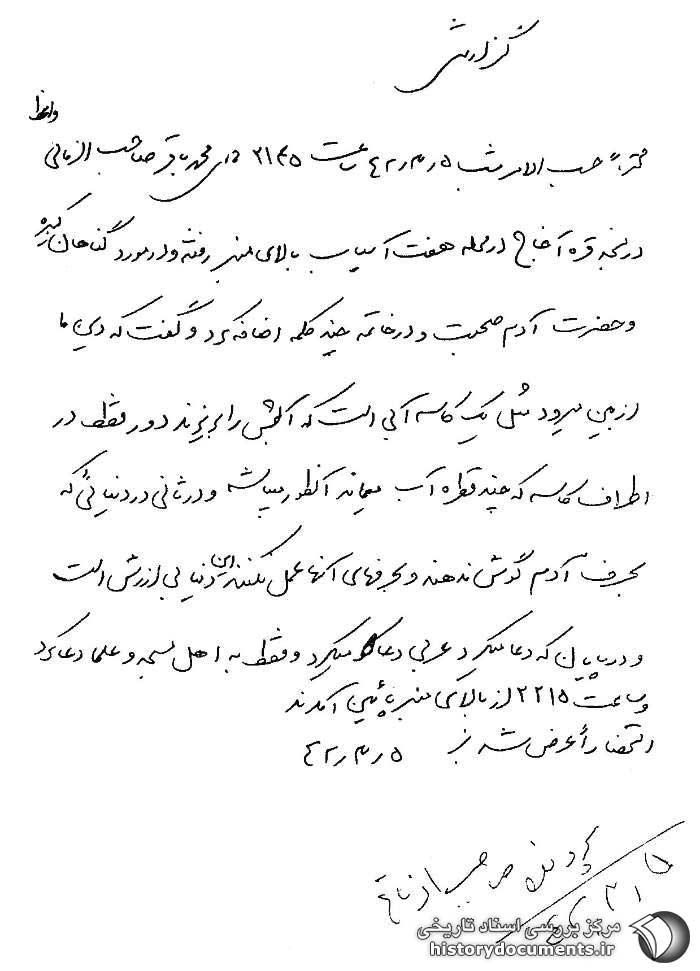 گزارش
واعظ
محترماً حسب الامر شب ۴۲/۳/۵ ساعت ۲۱۴۵ آقای محمد باقر صاحب الزمانی
در مسجد قره آغاج در محله هفت آسیاب بالای منبر رفته و در مورد گناهان کبیره
و حضرت آدم صحبت و در خاتمه چند کلمه اضافه کرد و گفت که دین ما
از بین میرود مثل یک کاسه آبی است که آبش را بریزند دور فقط در
اطراف کاسه که چند قطره آب میماند آنطور میباشد و در ثانی در دنیائی که
بحرف آدم گوش ندهند و بحرفهای آنها عمل نکنند این دنیا بی ارزش است
و در پایان که دعا میکرد عربی دعا میکرد و فقط به اهل مسجد و علما دعا کرد
و ساعت ۲۲۱۵ از بالای منبر پائین آمدند
استحضاراً عرض شد ۴۲/۳/۵
صاحب الزمانی
مرکز بررسی اسناد تاریخی
historydocuments.ir